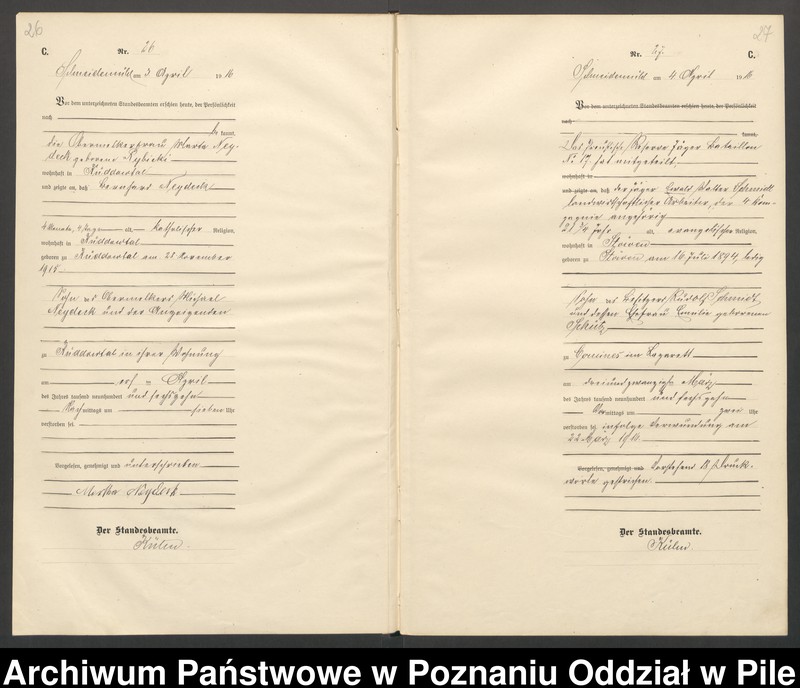 26
C.
Nr. 26
Schneidemühl am 3. April 1916
Vor dem unterzeichneten Standesbeamten erschien heute, der Persönlichkeit
nach
be kannt,
die Obermelkerfrau Marta Ney-
deck geborene Rybicki
wohnhaft in Küddowtal
und zeigte an, daß Bernhard Neydeck
4 Monate, Tage alt, katholischer Religion,
wohnhaft in Küddowtal
geboren zu Küddowtal am 21 November
1915
Sohn des Obermelkers Michael
Neydeck und der Anzeigenden
zu Küddowtal in ihrer Wohnung
am April
des Jahres tausend neunhundert und sechzehn
Nachmittags um sieben Uhr
verstorben sei.
Vorgelesen, genehmigt und unterschrieben
Martha Neydeck
Der Standesbeamte.
27
Nr. 27.
C.
Schneidemühl am 4 April 1916
Vor dem unterzeichneten Standesbeamten erschien heute, der Persönlichkeit
nach
kannt,
Das Preußische Reserve Jäger Bataillon
N: 17 hat mitgeteilt,
wohnhaft in
und zeigte an, daß der Jäger Ewald Walter Schmidt
landwirtschaftlicher Arbeiter, der 4 Kom-
pagnie angehörig
21 3/4 Jahr alt, evangelischer Religion,
wohnhaft in Stöwen
geboren zu Stöwen am 16 Juli 1894, ledig
Sohn des Besitzers Rudolf Schmidt
und dessen Ehefrau Emilie geborenen
Schulz
zu Comines im Lazarett
am dreiundzwanzigsten März
des Jahres tausend neunhundert und sechzehn
Vormittags um zwei Uhr
verstorben sei infolge Verwundung am
22 März 1916.
Vorgelesen, genehmigt und Vorstehend 18 Druck-
worte gestrichen
Der Standesbeamte.
Archiwum Państwowe w Poznaniu Oddział w Pile